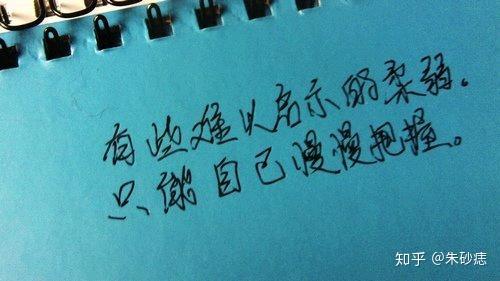 有些难以启示的柔弱。
只能自己慢慢把握。
知乎 @朱砂痣